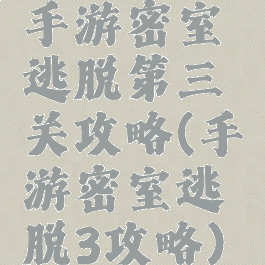 手游密室
逃脱第三
关攻略(手
游密室逃
脱3攻略)